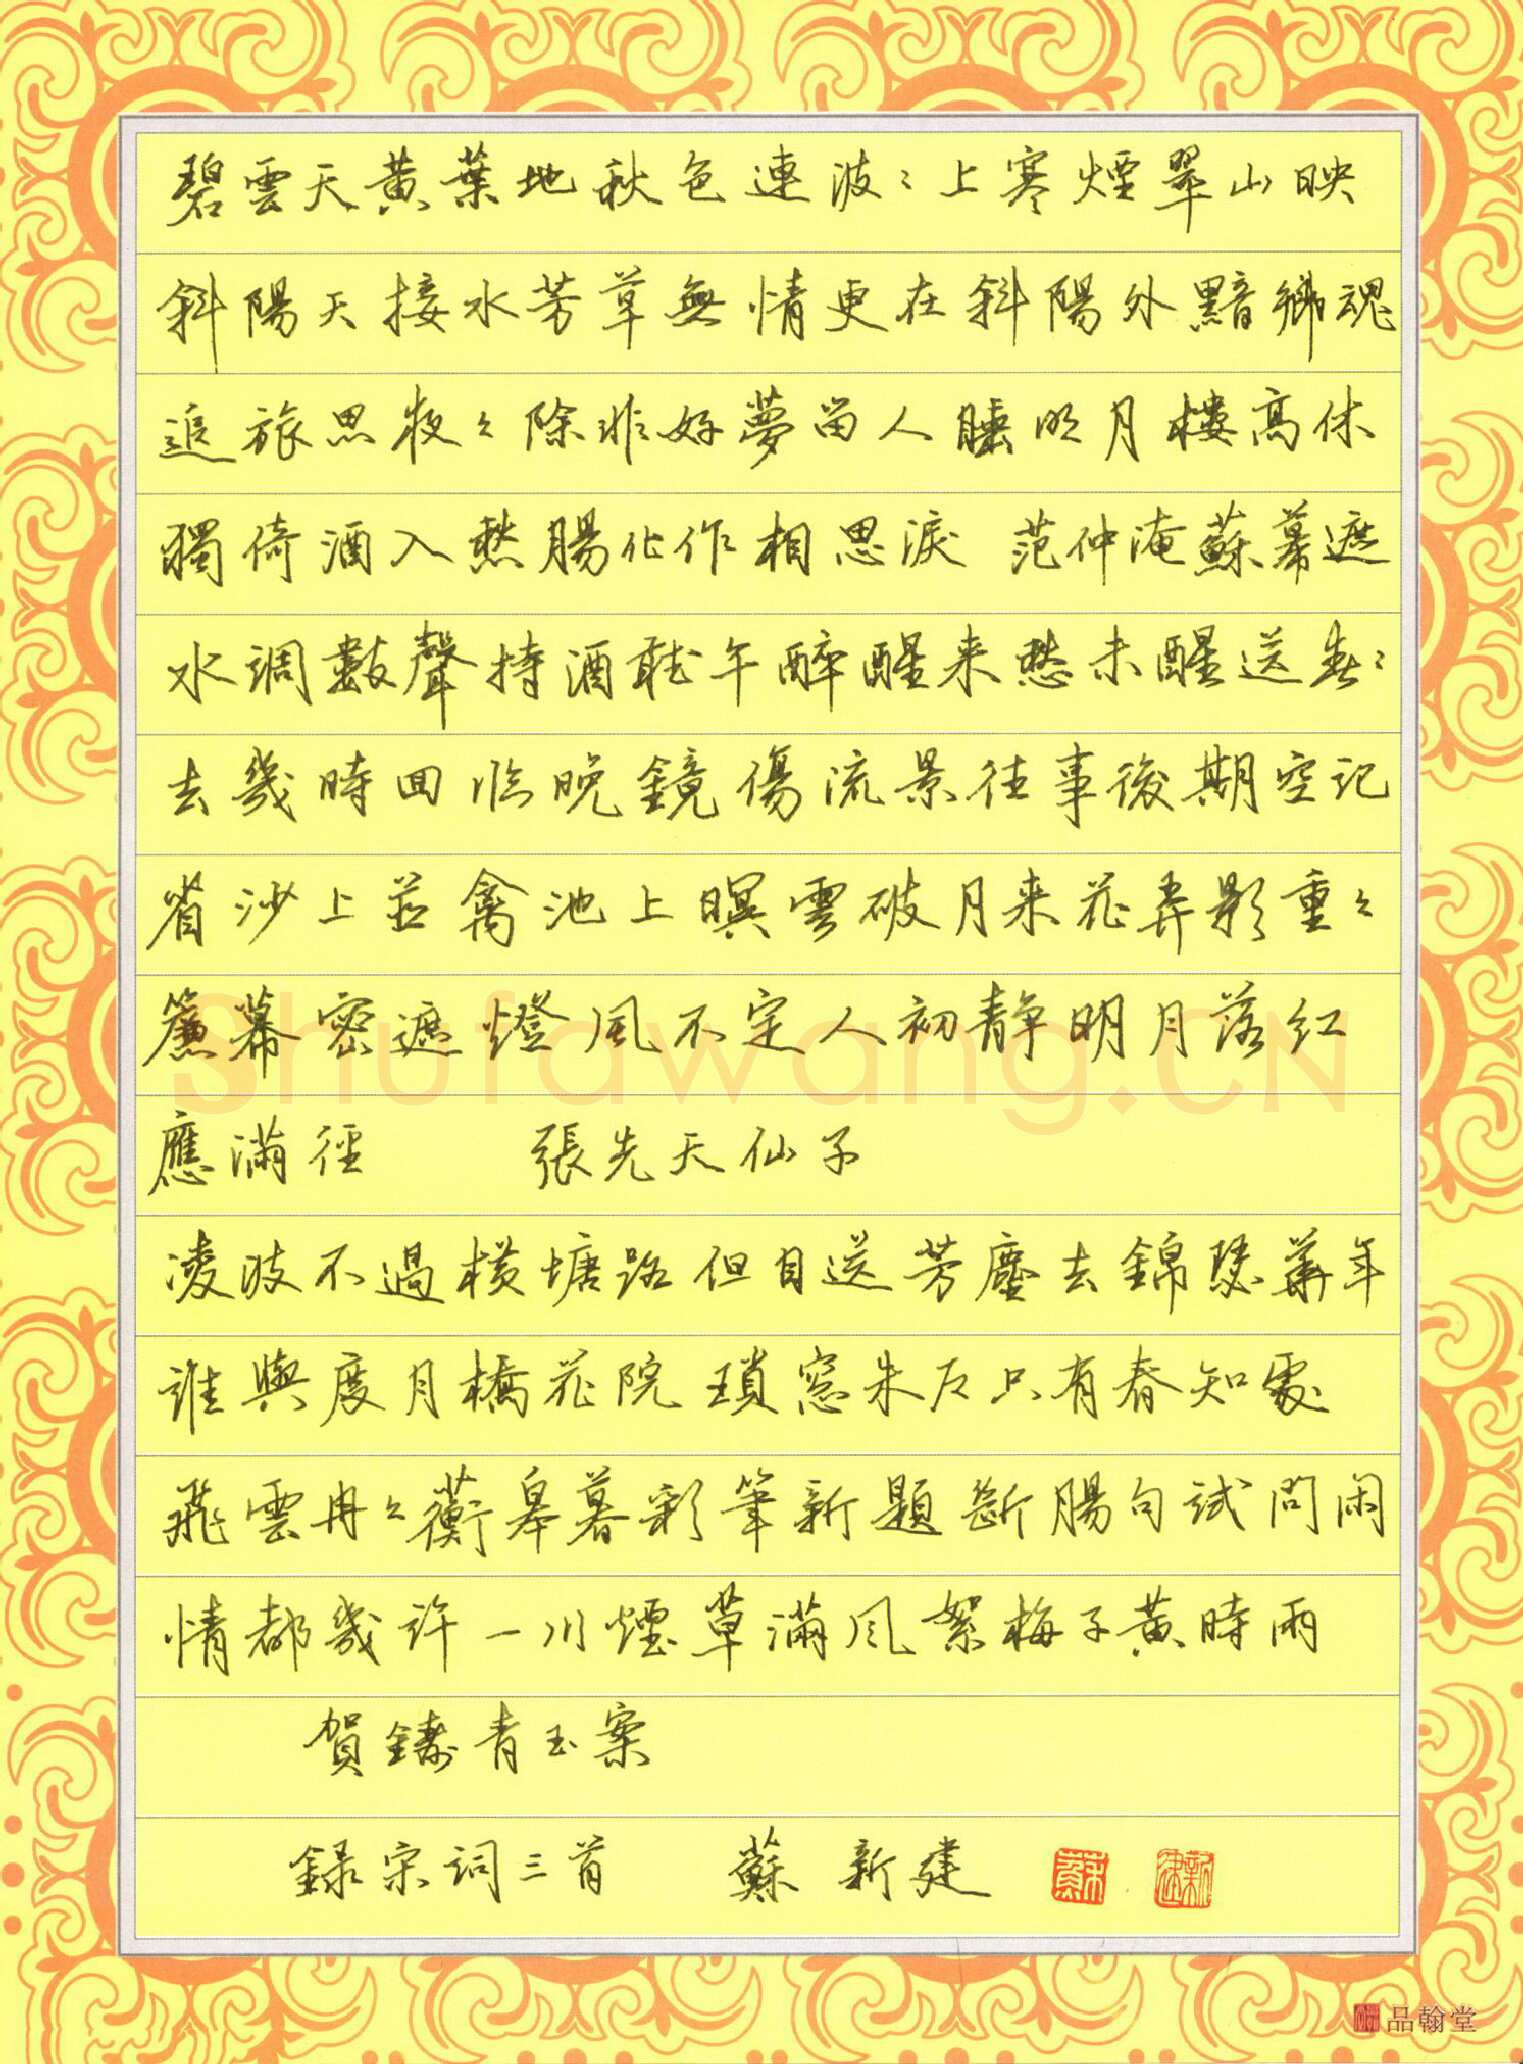 碧雲天黄葉地秋色連波々上寒煙翠山映
斜陽天接水芳草無情更在斜陽外黯鄉魂
追旅思夜々除非好夢留人睡明月樓高休
獨倚酒入愁腸化作相思淚 范仲淹蘇幕遮
水調數聲持酒聽午醉醒来愁未醒送春々
去幾時回臨晚鏡傷流景往事後期空記
省沙上並禽池上暝雲破月来花弄影重々
簾幕密遮燈風不定人初静明月落紅
應滿徑 張先天仙子
凌波不過橫塘路但目送芳塵去錦瑟華年
誰與度月橋花院瑣窓朱户只有春知處
飛雲冉々蘅皋暮彩筆新題斷腸句試問閑
情都幾許一川煙草滿風絮梅子黄時雨
賀鑄青玉案
録宋詞三首 蘇新建
蘇 新建
Shufawang.CN
品翰堂